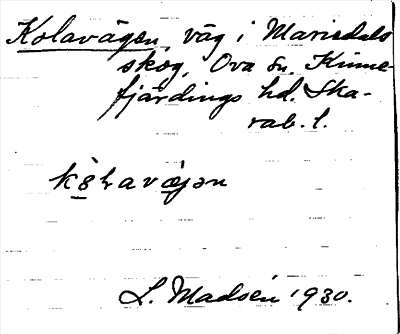 Kolavägen, väg i Mariedals
skog, Ova sn, Kinne-
fjärdings hd. Ska-
rab. l.
L. Madsén 1930.